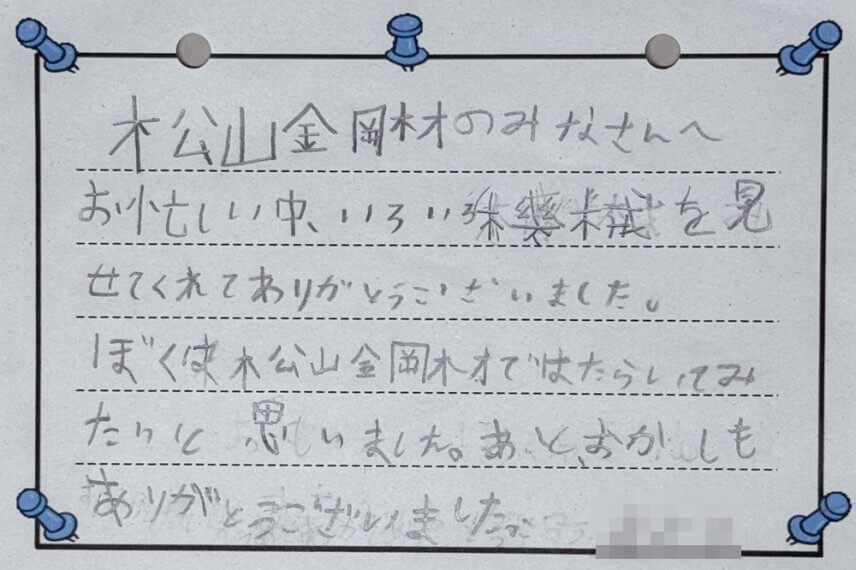 松山鋼材のみなさんへ
お忙しい中、いろいろ機械を見
せてくれてありがとうございました。
ぼくは松山鋼材ではたらいてみ
たいと思いました。あと、おかしも
ありがとうございました。